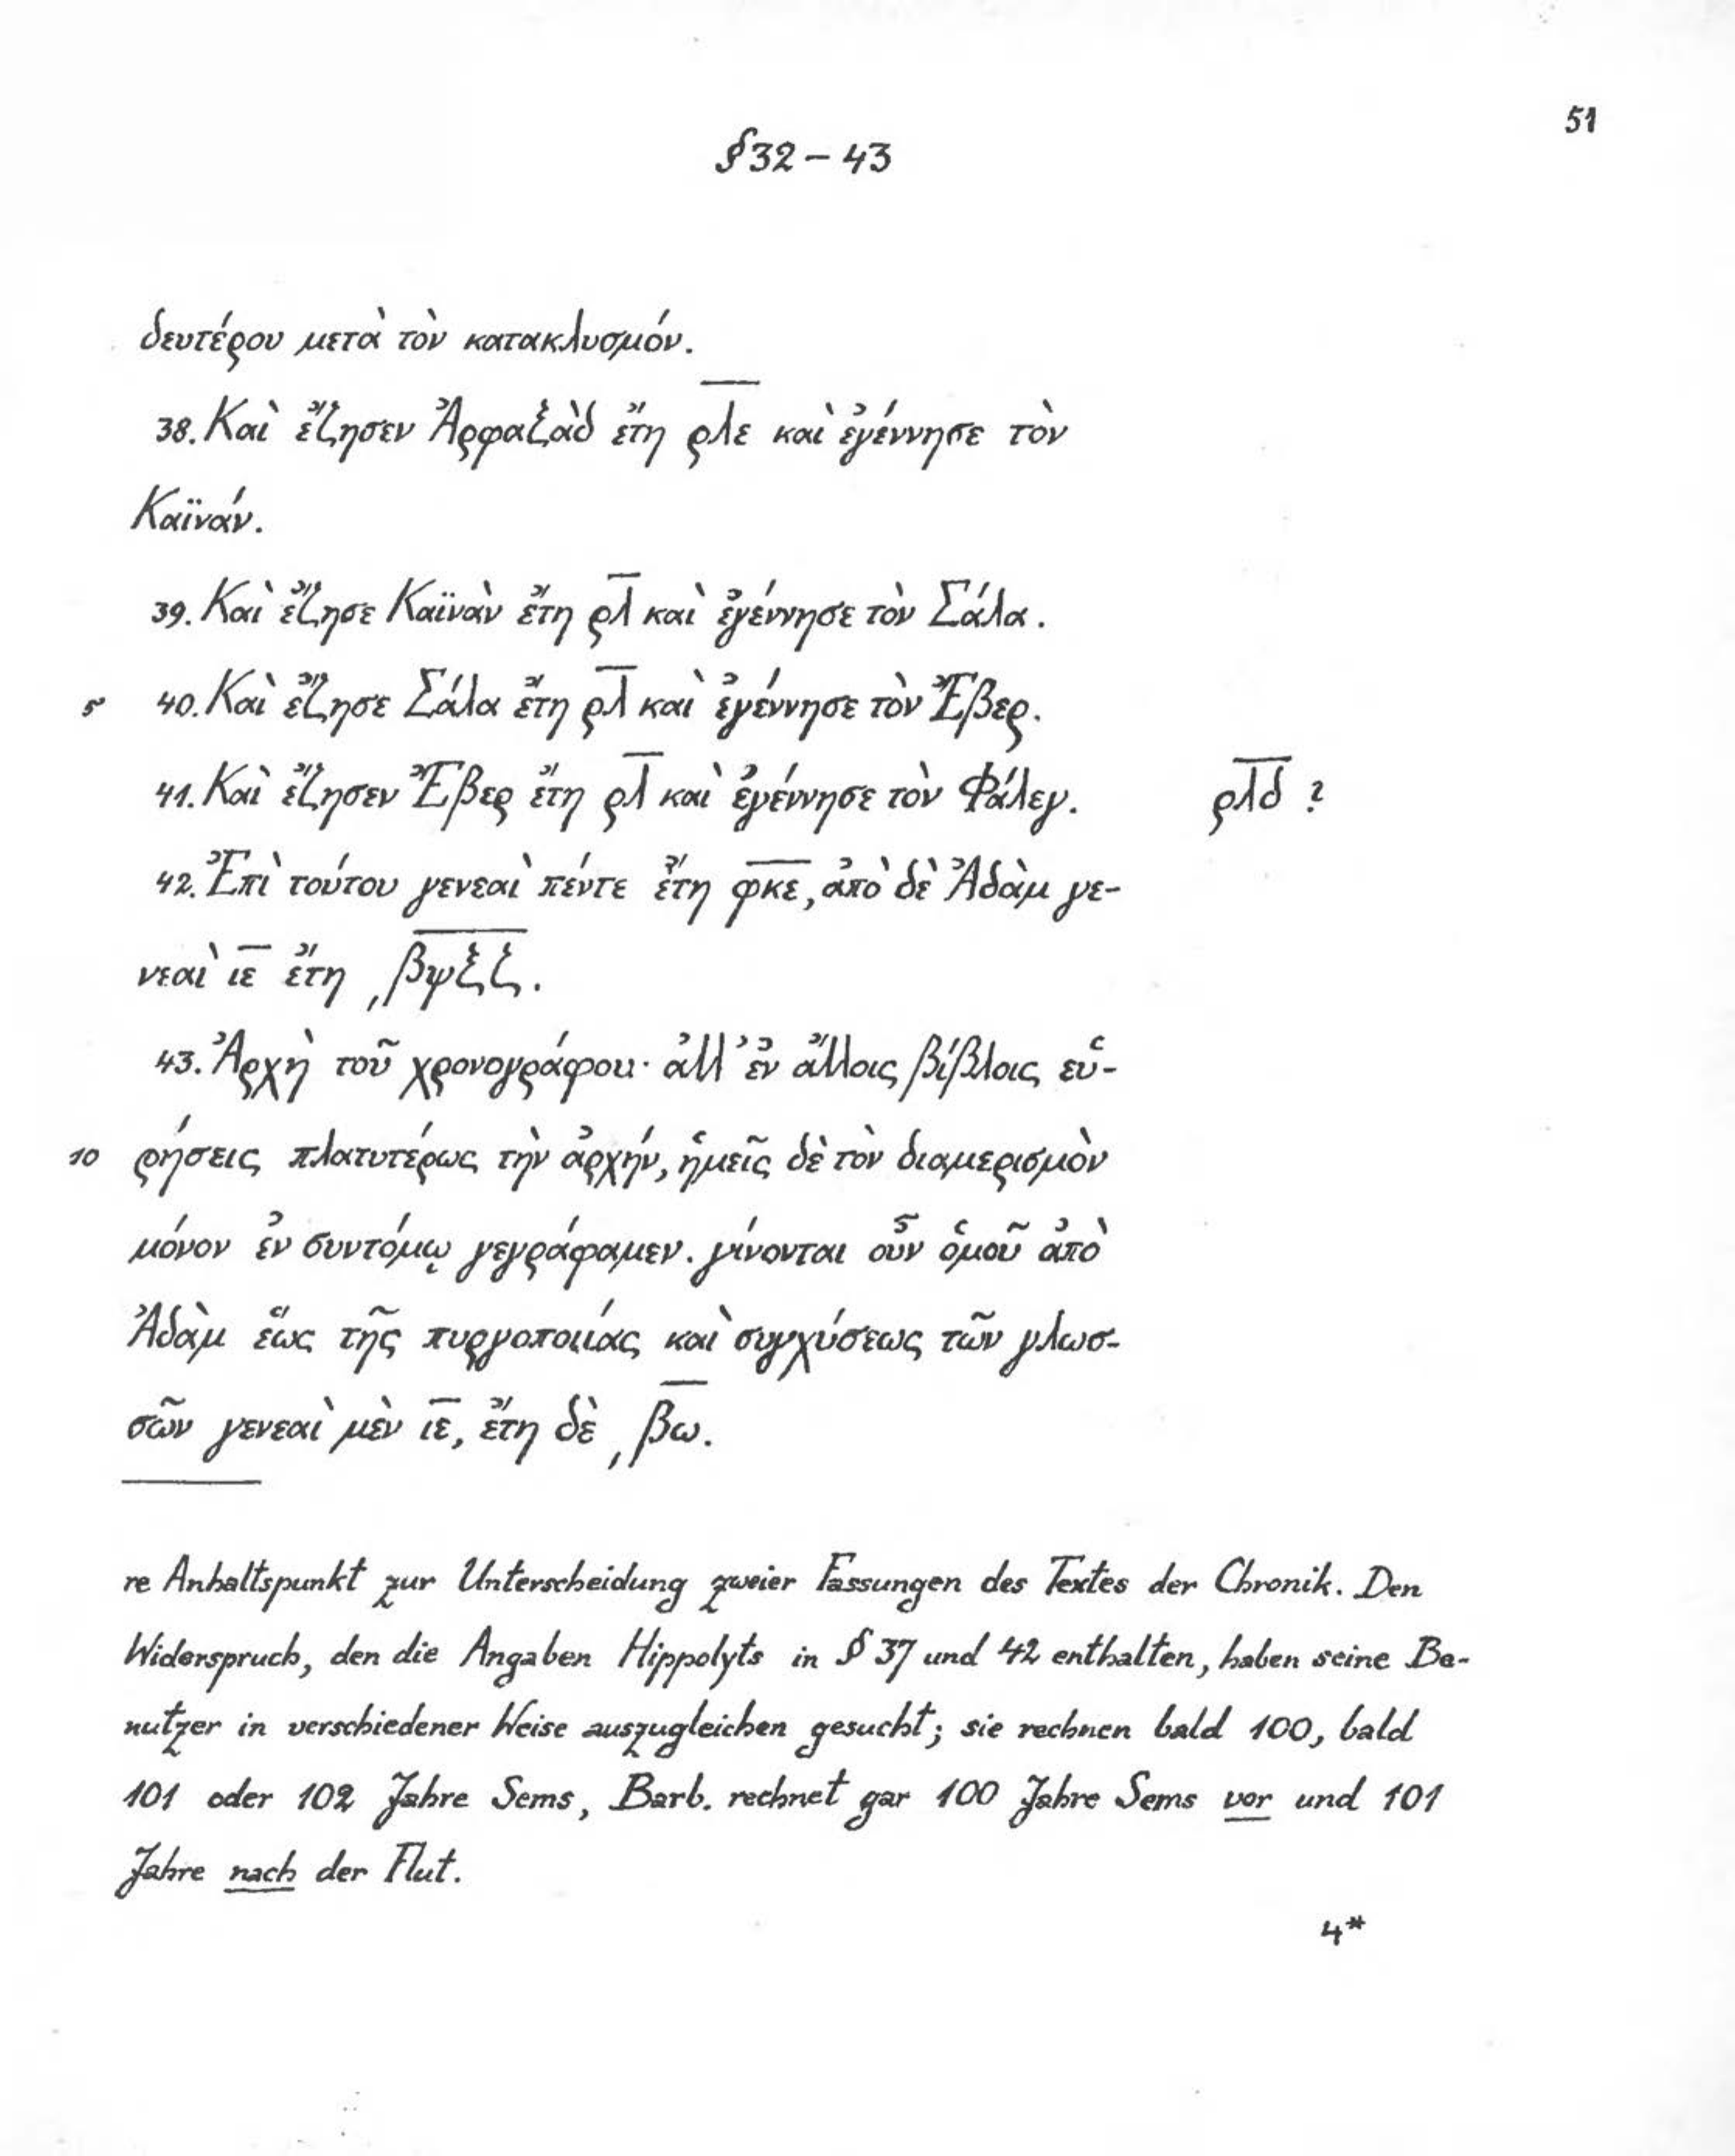 51
§ 32 – 43
δευτέρου μετὰ τὸν κατακλυσμόν.
38. Καὶ ἔζησεν Ἀρφαξὰδ ἔτη ρ̅λ̅ε̅ καὶ ἐγέννησε τὸν
Καϊνάν.
39. Καὶ ἔζησε Καϊνὰν ἔτη ρ̅λ̅ καὶ ἐγέννησε τὸν Σάλα.
5 40. Καὶ ἔζησε Σάλα ἔτη ρ̅λ̅ καὶ ἐγέννησε τὸν Ἔβερ.
41. Καὶ ἔζησεν Ἔβερ ἔτη ρ̅λ̅ καὶ ἐγέννησε τὸν Φάλεγ. ρ̅λ̅δ̅ ?
42. Ἐπὶ τούτου γενεαὶ πέντε ἔτη φ̅κ̅ε̅, ἀπὸ δὲ Ἀδὰμ γε-
νεαὶ ι̅ε̅ ἔτη ͵β̅ψ̅ξ̅ζ̅.
43. Ἀρχὴ τοῦ χρονογράφου· ἀλλ’ ἐν ἄλλοις βίβλοις εὑ-
10 ρήσεις πλατυτέρως τὴν ἀρχήν, ἡμεῖς δὲ τὸν διαμερισμὸν
μόνον ἐν συντόμῳ γεγράφαμεν. γίνονται οὖν ὁμοῦ ἀπὸ
Ἀδὰμ ἕως τῆς πυργοποιίας καὶ συγχύσεως τῶν γλωσ-
σῶν γενεαὶ μὲν ι̅ε̅, ἔτη δὲ ͵β̅ω̅.
re Anhaltspunkt zur Unterscheidung zweier Fassungen des Textes der Chronik. Den
Widerspruch, den die Angaben Hippolyts in § 37 und 42 enthalten, haben seine Be-
nutzer in verschiedener Weise auszugleichen gesucht; sie rechnen bald 100, bald
101 oder 102 Jahre Sems, Barb. rechnet gar 100 Jahre Sems vor und 101
Jahre nach der Flut.
4*